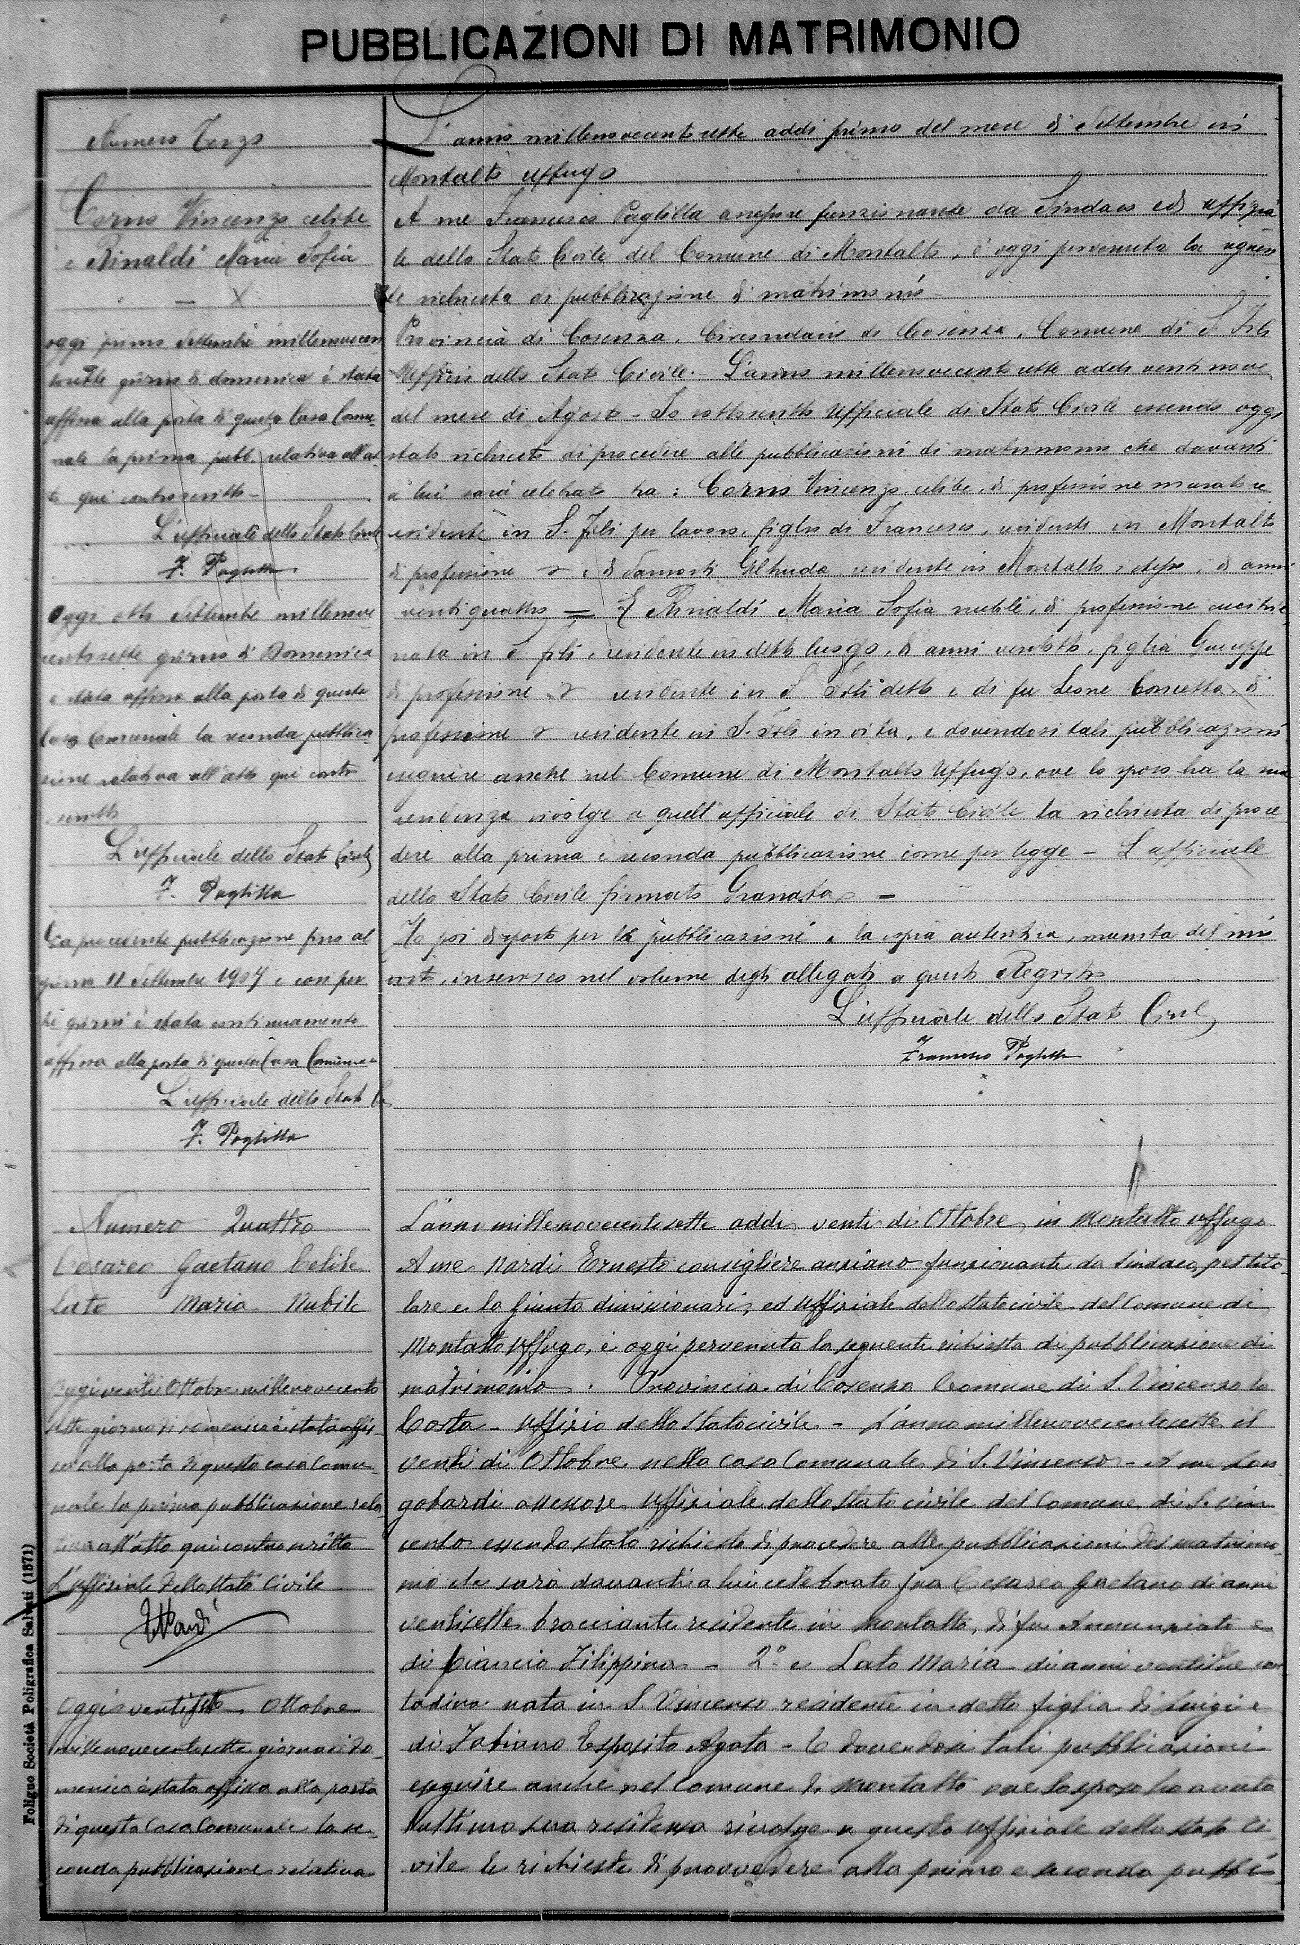 PUBBLICAZIONI DI MATRIMONIO
Numero Terzo
Corno Vincenzo celibe
e Rinaldi Maria Sofia
oggi primo Settembre millenovecen
tosette giorno di domenica è stata
affissa alla porta di questa Casa Comu
nale la prima pubb. relativa all'at
to qui controscritto
L'ufficiale dello Stato Civile
F. Paglilla
Oggi otto Settembre millenove
centosette giorno di Domenica
è stata affissa alla porta di questa
Casa Comunale la seconda pubblica
zione relativa all'atto qui contro
scritto
L'ufficiale dello Stato Civile
F. Paglilla
La presente pubblicazione fino al
giorno 11 Settembre 1907 e con per
tre giorni è stata continuamente
affissa alla porta di questa Casa Comunale
L'ufficiale dello Stato Ci
F. Paglilla
L'anno millenovecentosette addì primo del mese di Settembre in
Montalto Uffugo
A me Francesco Paglilla assessore funzionante da Sindaco ed uffizia
le dello Stato Civile del Comune di Montalto, è oggi pervenuta la seguen
te richiesta di pubblicazione di matrimonio
Provincia di Cosenza, Circondario di Cosenza, Comune di S. Fili
Ufficio dello Stato Civile. L'anno millenovecentosette addì ventinove
del mese di Agosto - Io sottoscritto Ufficiale di Stato Civile essendo oggi
stato richiesto di procedere alle pubblicazioni di matrimonio che davanti
a lui sarà celebrato tra: Corno Vincenzo celibe, di professione muratore
residente in S. Fili per lavoro, figlio di Francesco, residente in Montalto
di professione e di Geltrude residente in Montalto stesso, di anni
ventiquattro = E Rinaldi Maria Sofia nubile, di professione cucitrice
nata in S. Fili, residente in detto luogo, di anni ventotto, figlia Giuseppe
di professione residente in S. Fili detto e di fu Leone Concetta, di
professione residente in S. Fili in vita, e dovendosi tali pubblicazioni
eseguire anche nel Comune di Montalto Uffugo, ove lo sposo ha la sua
residenza rivolge a quell'ufficiale di Stato Civile la richiesta di proce
dere alla prima e seconda pubblicazione come per legge - L'ufficiale
dello Stato Civile firmato Granata -
Ho poi disposto per le pubblicazioni e la copia autentica, munita del mio
visto, inserisco nel volume degli allegati a questo Registro
L'ufficiale dello Stato Civile
Francesco Paglilla
Numero Quattro
Cesareo Gaetano Celibe
Lato Maria Nubile
Oggi venti Ottobre millenovecento
sette giorno di domenica è stata affis
sa alla porta di questa casa Comu
nale la prima pubblicazione rela
tiva all'atto qui controscritto
L'Uffiziale dello stato Civile
E Nardi
Oggi ventisette Ottobre
millenovecentosette giorno di Do
menica è stata affissa alla porta
di questa Casa Comunale la se
conda pubblicazione relativa
L'anno millenovecentosette addì venti di Ottobre in Montalto Uffugo
A me Nardi Ernesto consigliere anziano funzionante da Sindaco, pel tito
lare e la Giunta dimissionari, ed Uffiziale dello stato civile del Comune di
Montalto Uffugo, è oggi pervenuta la seguente richiesta di pubblicazione di
matrimonio. Provincia di Cosenza Comune di S. Vincenzo la
Costa - Uffizio dello stato civile - L'anno millenovecentosette il
venti di Ottobre nella casa Comunale di S. Vincenzo - A me Lon
gobardi assessore Uffiziale dello stato civile del Comune di S. Vin
cenzo essendo stato richiesto di procedere alle pubblicazioni del matrimo
nio che sarà davanti a lui celebrato fra Cesareo Gaetano di anni
ventisette bracciante residente in Montalto, di fu Annunziato e
di Ciancio Filippina - 2° e Lato Maria di anni ventidue con
tadina nata in S. Vincenzo residente in detto figlia di Luigi e
di Fabiano Esposito Agata - E dovendosi tali pubblicazioni
eseguire anche nel Comune di Montalto ove lo sposo ha avuto
l'ultima sua residenza rivolge a questo Uffiziale dello stato Ci
vile la richiesta di provvedere alla prima e seconda pubbli
Foligno Società Poligrafica Salvati (1871)